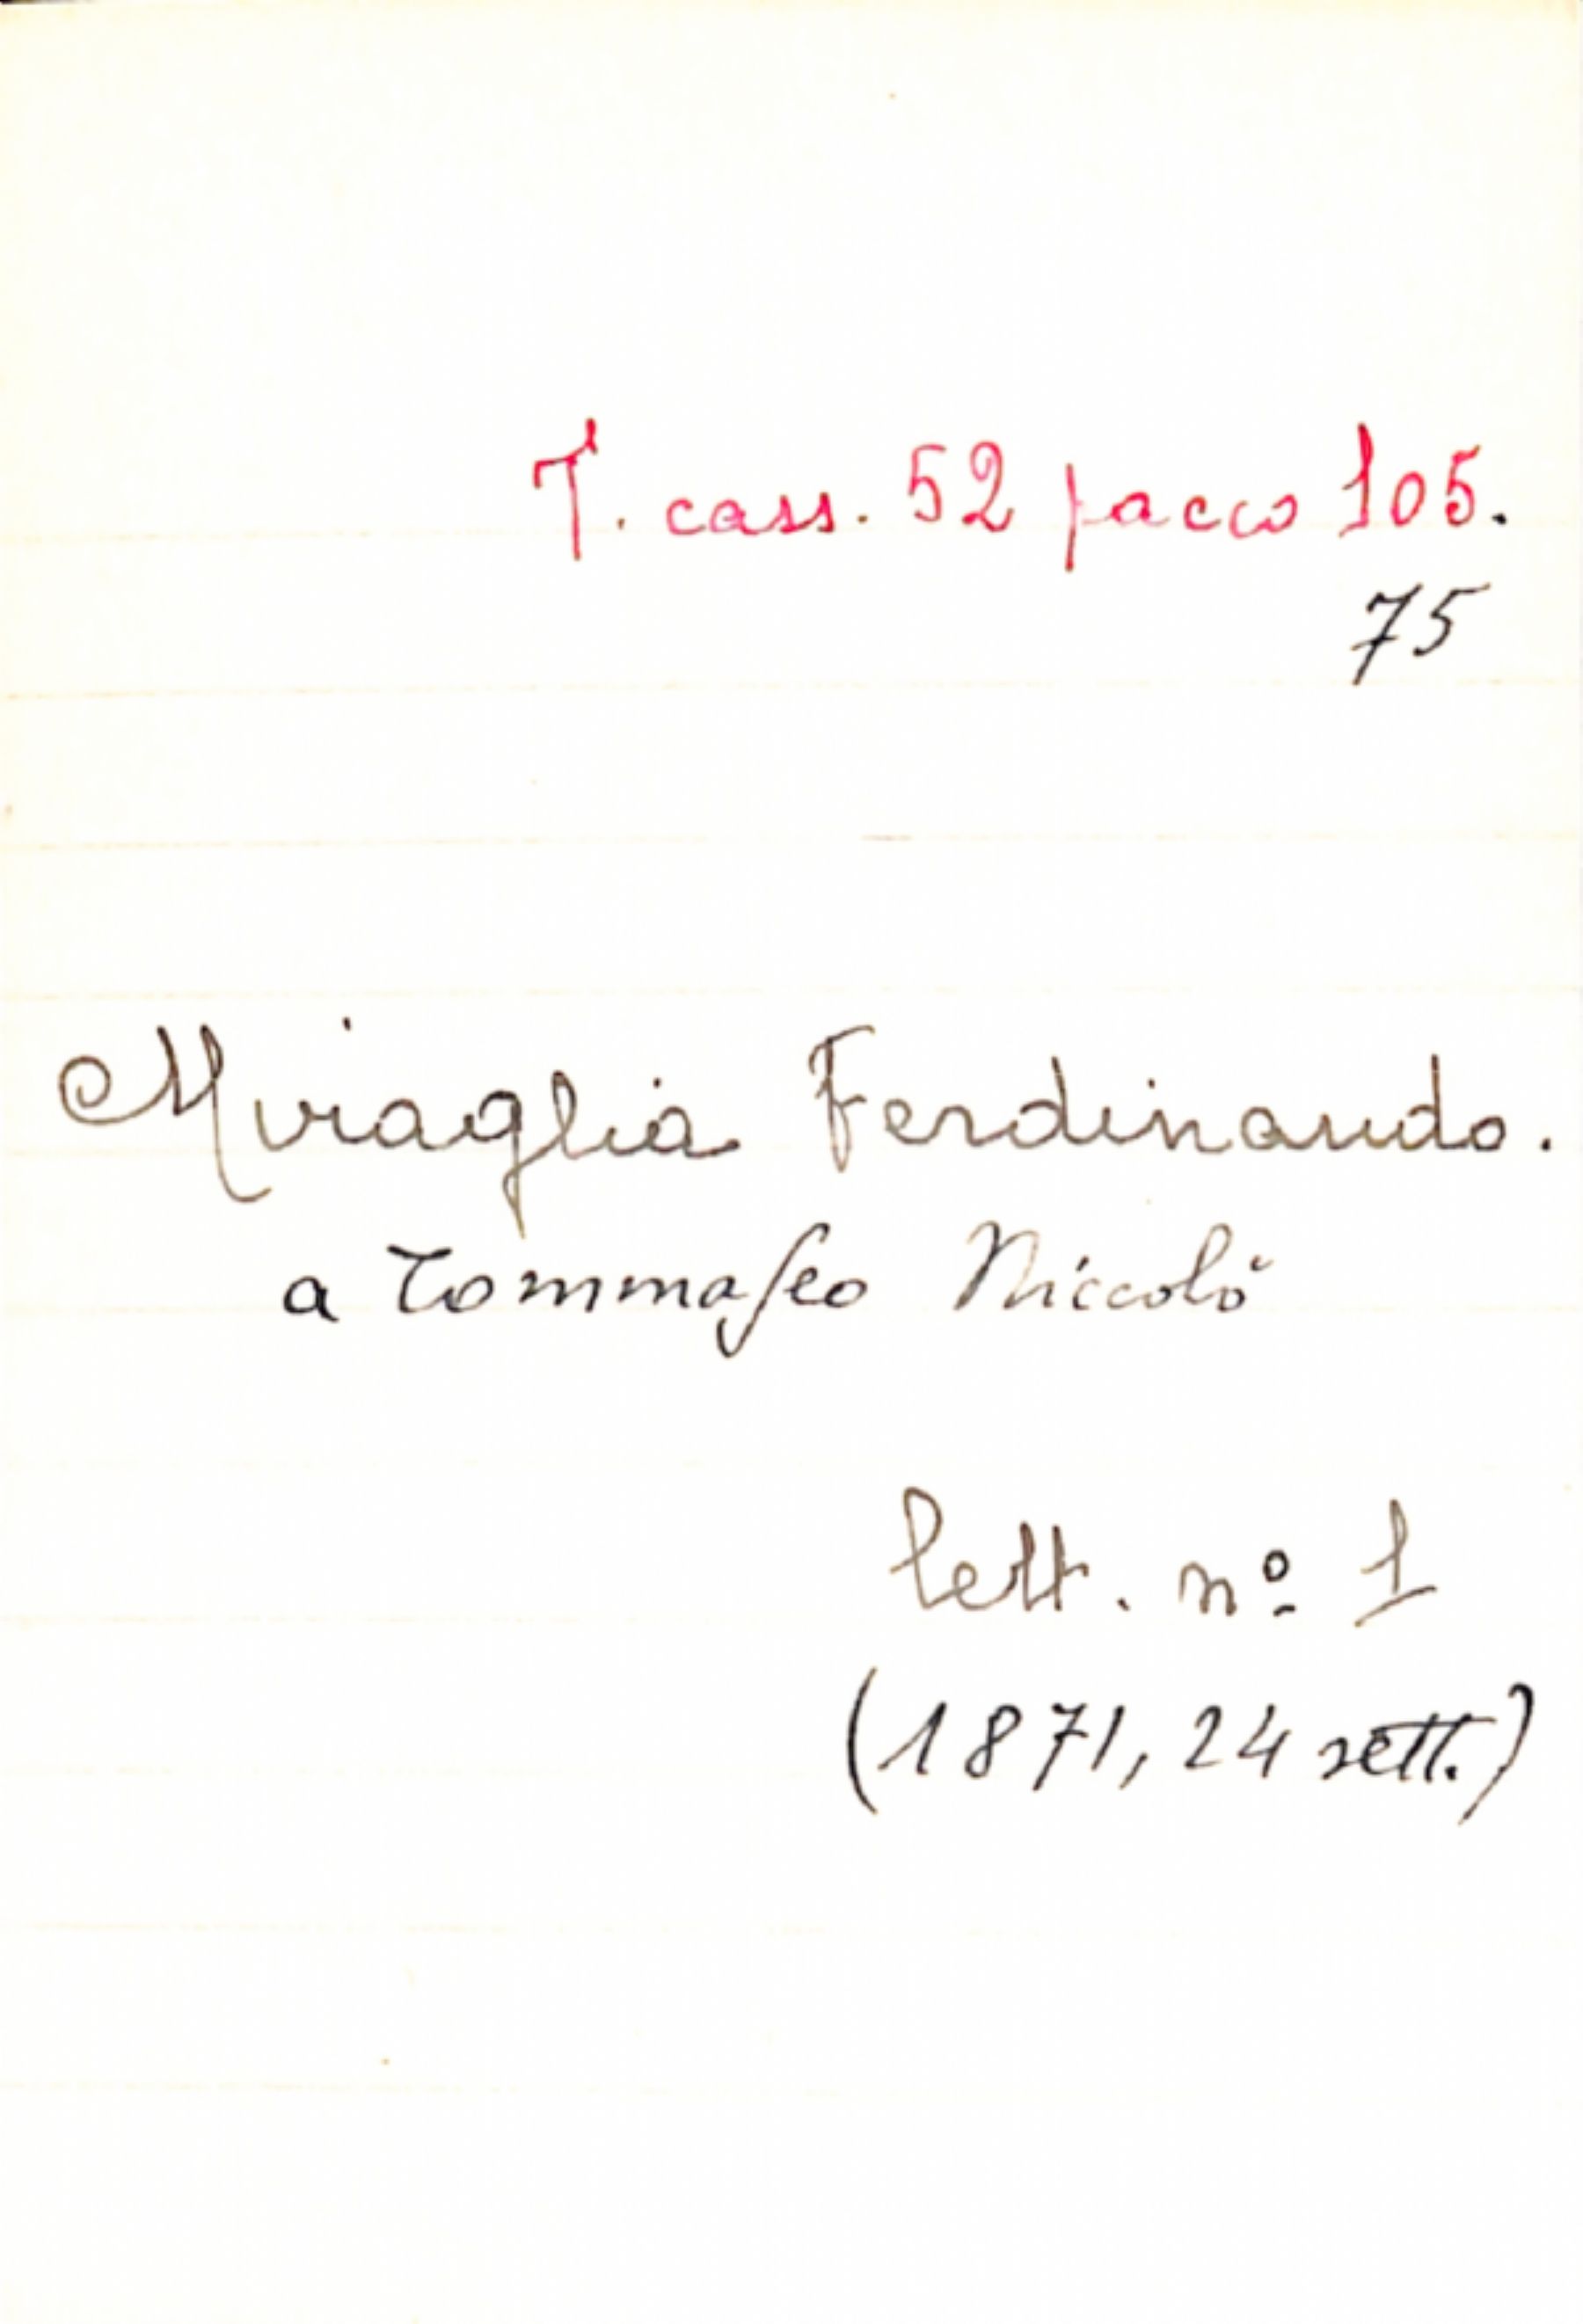 T. cass. 52 pacco 105.
75
Miraglia Ferdinando.
a Tommaseo Niccolò
lett. nº 1
(1871, 24 sett.)